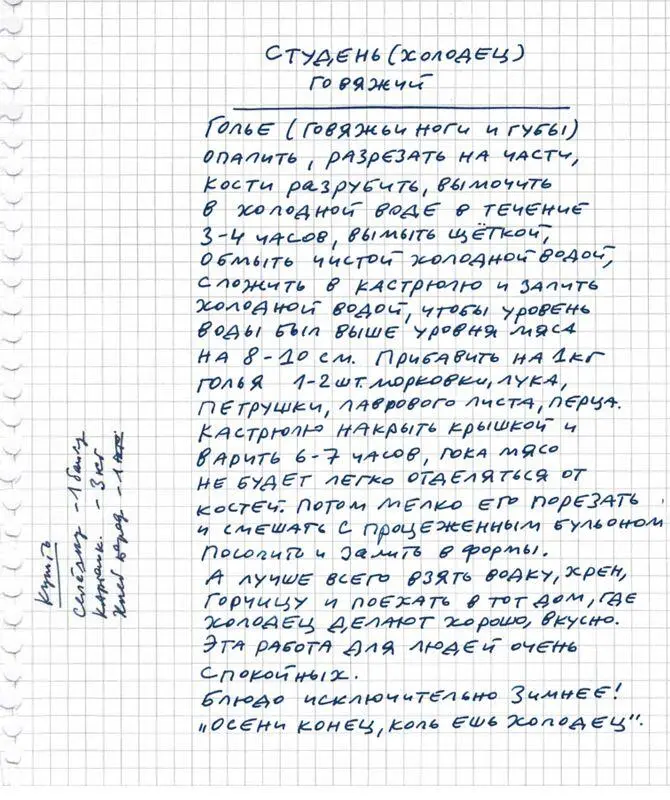 СТУДЕНЬ (ХОЛОДЕЦ)
ГОВЯЖИЙ
ГОЛЬЕ (ГОВЯЖЬИ НОГИ И ГУБЫ)
ОПАЛИТЬ, РАЗРЕЗАТЬ НА ЧАСТИ,
КОСТИ РАЗРУБИТЬ, ВЫМОЧИТЬ
В ХОЛОДНОЙ ВОДЕ В ТЕЧЕНИЕ
3-4 ЧАСОВ, ВЫМЫТЬ ЩЁТКОЙ,
ОБМЫТЬ ЧИСТОЙ ХОЛОДНОЙ ВОДОЙ,
СЛОЖИТЬ В КАСТРЮЛЮ И ЗАЛИТЬ
ХОЛОДНОЙ ВОДОЙ, ЧТОБЫ УРОВЕНЬ
ВОДЫ БЫЛ ВЫШЕ УРОВНЯ МЯСА
НА 8-10 СМ. ПРИБАВИТЬ НА 1 КГ
ГОЛЬЯ 1-2 ШТ. МОРКОВКИ, ЛУКА,
ПЕТРУШКИ, ЛАВРОВОГО ЛИСТА, ПЕРЦА.
КАСТРЮЛЮ НАКРЫТЬ КРЫШКОЙ И
ВАРИТЬ 6-7 ЧАСОВ, ПОКА МЯСО
НЕ БУДЕТ ЛЕГКО ОТДЕЛЯТЬСЯ ОТ
КОСТЕЙ. ПОТОМ МЕЛКО ЕГО ПОРЕЗАТЬ
И СМЕШАТЬ С ПРОЦЕЖЕННЫМ БУЛЬОНОМ
ПОСОЛИТЬ И ЗАЛИТЬ В ФОРМЫ.
А ЛУЧШЕ ВСЕГО ВЗЯТЬ ВОДКУ, ХРЕН,
ГОРЧИЦУ И ПОЕХАТЬ В ТОТ ДОМ, ГДЕ
ХОЛОДЕЦ ДЕЛАЮТ ХОРОШО, ВКУСНО.
ЭТА РАБОТА ДЛЯ ЛЮДЕЙ ОЧЕНЬ
СПОКОЙНЫХ.
БЛЮДО ИСКЛЮЧИТЕЛЬНО ЗИМНЕЕ!
„ОСЕНИ КОНЕЦ, КОЛЬ ЕШЬ ХОЛОДЕЦ".
Купить
Селёдку - 1 банку
Картошк. - 3 кг
Хлеб - 1